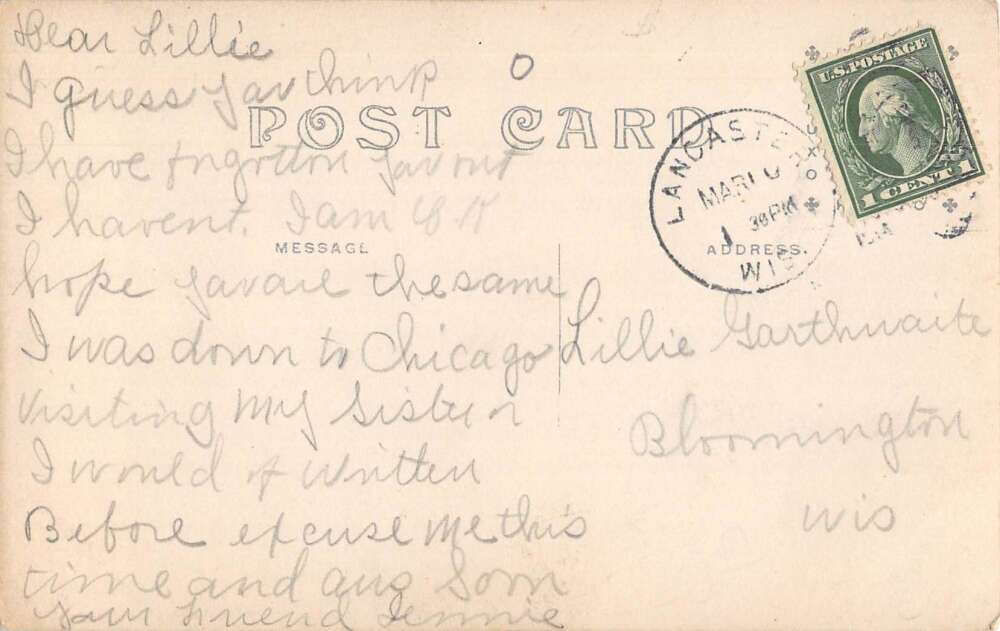 Dear Lillie
I guess you think
I have forgotton you but
I havent. I am O K
hope you are the same
I was down to Chicago
visiting my sister
I would of written
Before excuse me this
time and ans Soon
your Friend Jennie
POST CARD
MESSAGE
ADDRESS.
LANCASTER
MAR 10
30 PM
WIS
U.S. POSTAGE
1 CENT 1
Lillie Garthwaite
Bloomington
Wis